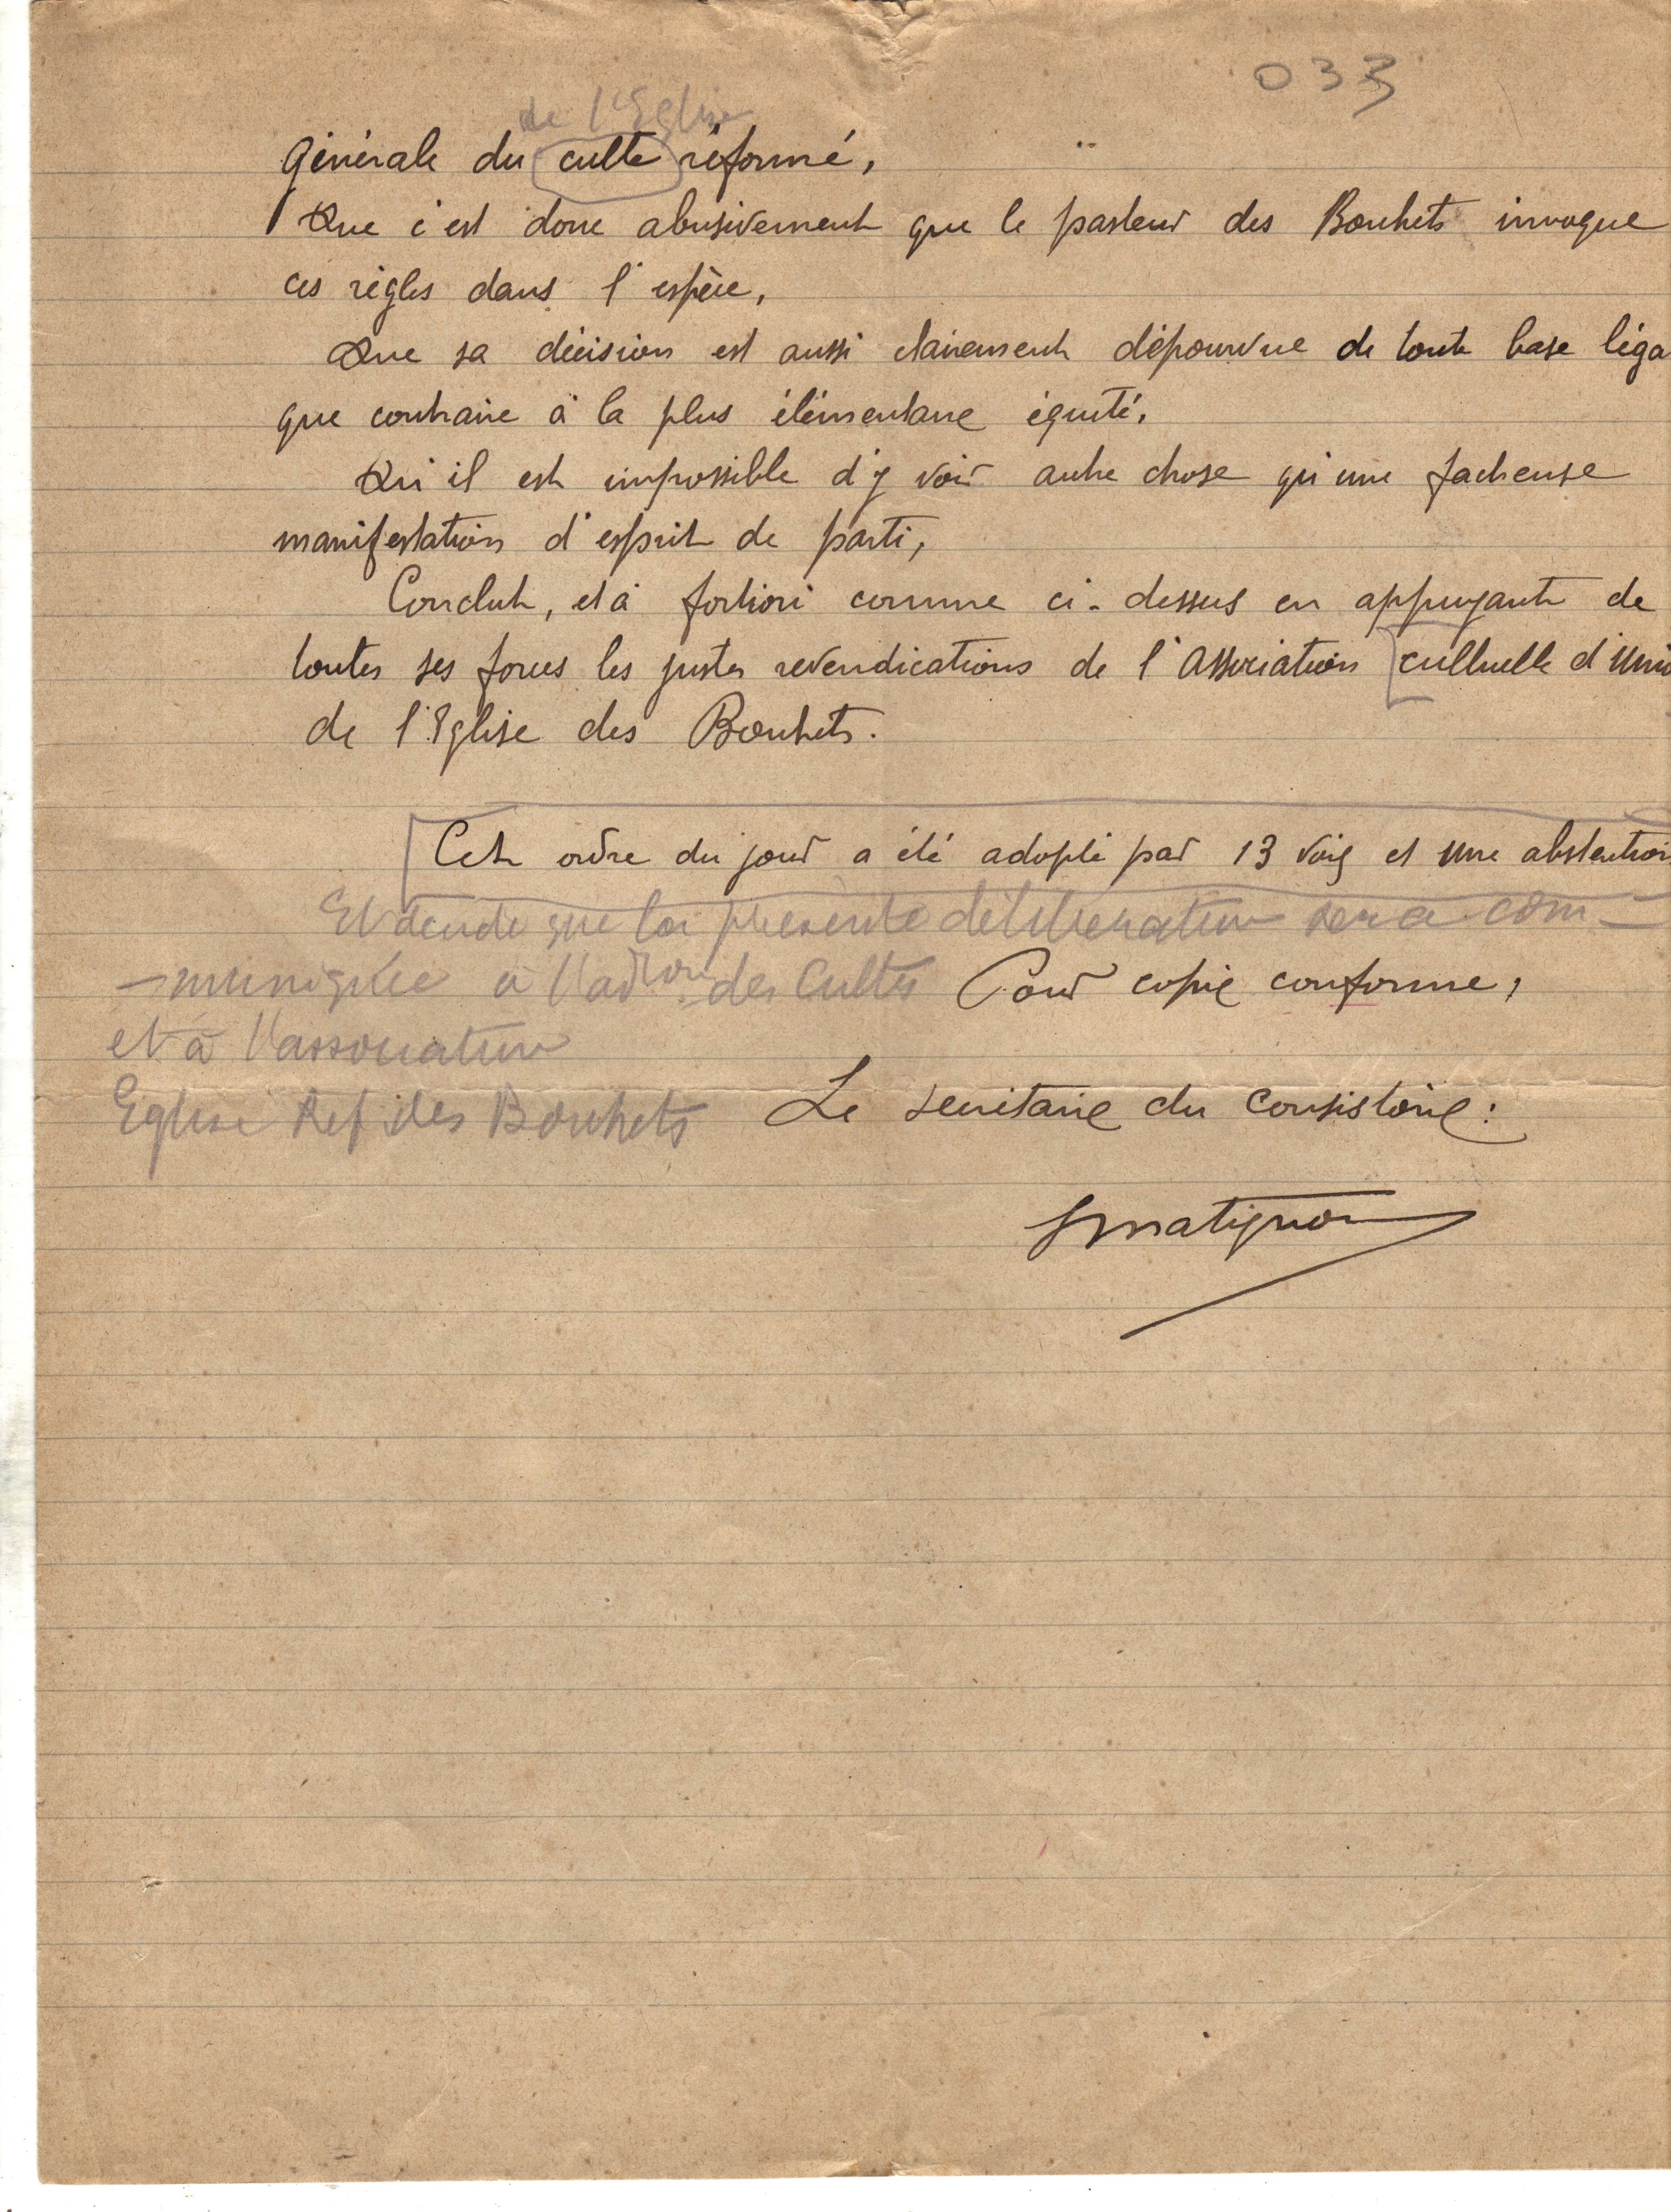 033
de l'Eglise
Générale du culte réformé,
Que c'est donc abusivement que le pasteur des Bouhets invoque
ces règles dans l'espèce,
Que sa décision est aussi clairement dépourvue de toute base léga
que contraire à la plus élémentaire équité,
Qu'il est impossible d'y voir autre chose qu'une facheuse
manifestation d'esprit de parti,
Conclut, et à fortiori comme ci-dessus en appuyant de
toutes ses forces les justes revendications de l'Association cultuelle d'Uni
de l'Eglise des Bouhets.
Cet ordre du jour a été adopté par 13 voix et une abstention
Et décide que la présente délibération sera com-
-muniquée à l'adtion des Cultes Pour copie conforme,
et à l'association
Eglise Ref. des Bouhets Le secrétaire du Consistoire :
Matignon